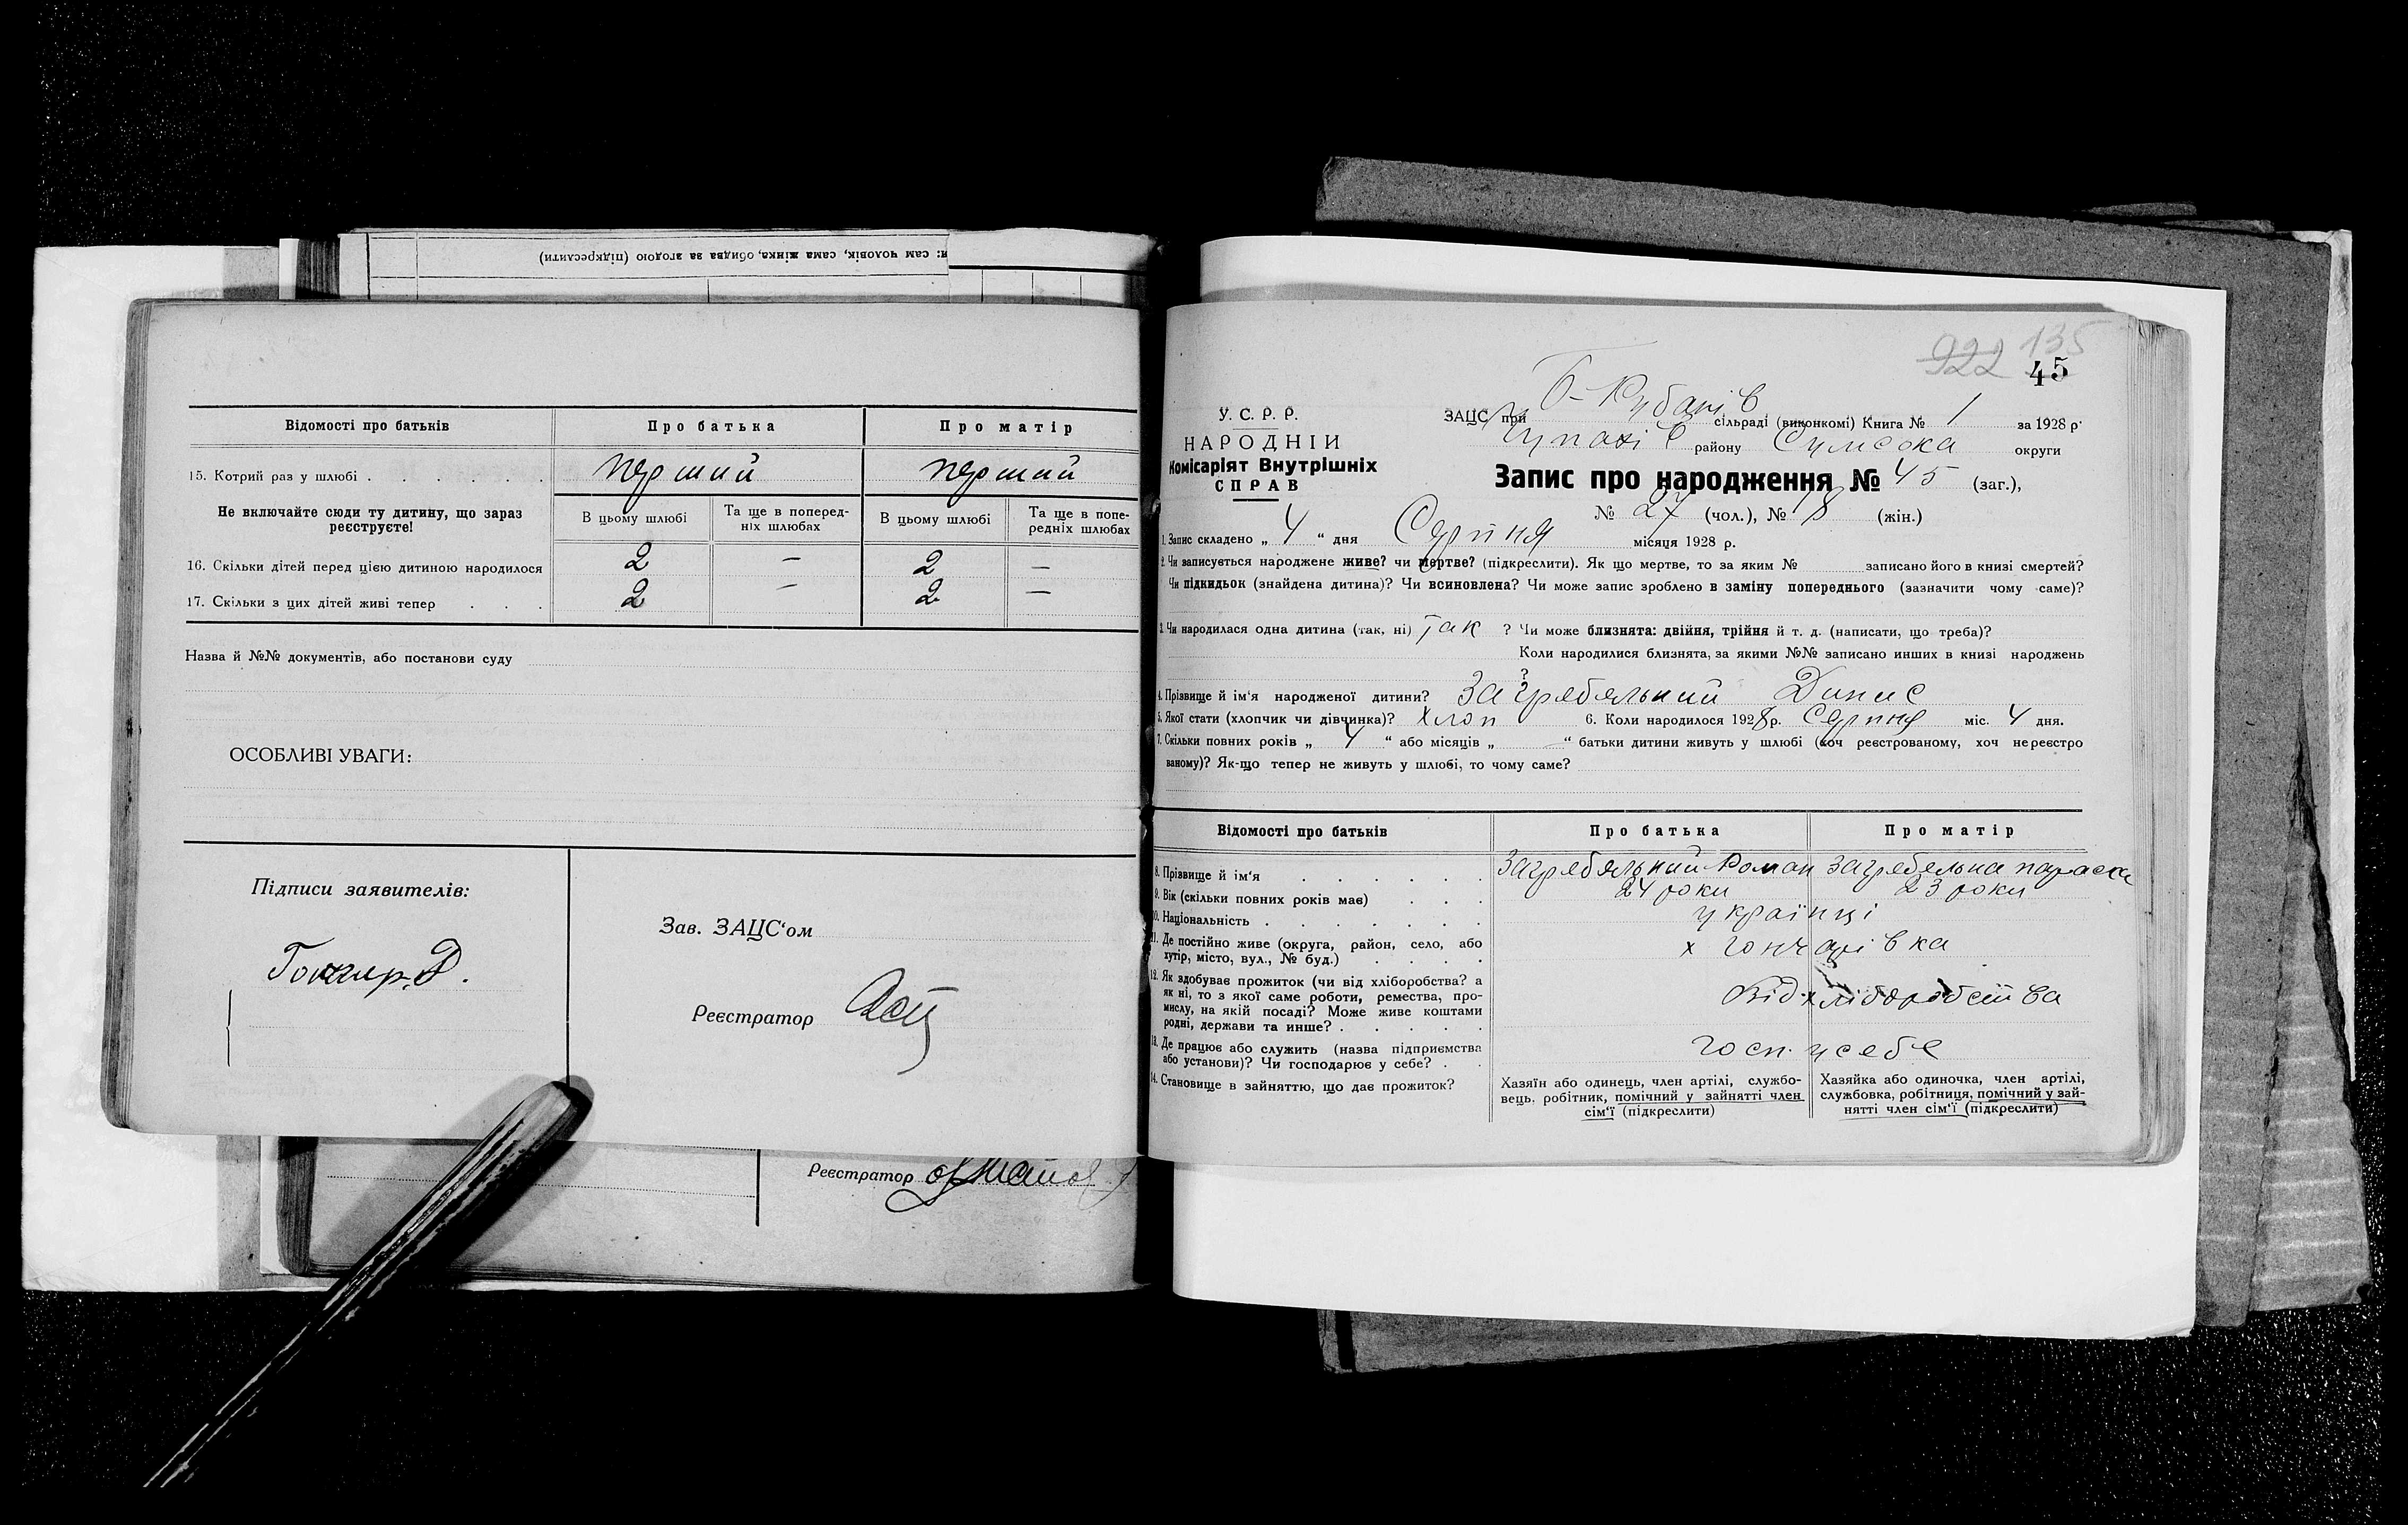 и: сам чоловік, сама жінка, обидва за згодою (підкреслити)
Відомості про батьків
Про батька
Про матір
15. Котрий раз у шлюбі
перший
перший
Не включайте сюди ту дитину, що зараз реєструєте!
В цьому шлюбі
Та ще в попередніх шлюбах
В цьому шлюбі
Та ще в попередніх шлюбах
16. Скільки дітей перед цією дитиною народилося
2 — 2 —
17. Скільки з цих дітей живі тепер
2 — 2 —
Назва й №№ документів, або постанови суду
ОСОБЛИВІ УВАГИ:
Підписи заявителів:
Зав. ЗАЦС'ом
Реєстратор
Реєстратор
922 135
45
У. С. Р. Р.
НАРОДНІЙ
Комісаріят Внутрішніх
СПРАВ
ЗАЦС при сільраді (виконкомі) Книга № 1 за 1928 р.
району Сумська округи
Запис про народження № 45 (заг.),
№ 27 (чол.), № 18 (жін.)
1. Запис складено „ 4 " дня Серпня місяця 1928 р.
2. Чи записується народжене живе? чи мертве? (підкреслити). Як що мертве, то за яким № записано його в книзі смертей?
Чи підкидьок (знайдена дитина)? Чи всиновлена? Чи може запис зроблено в заміну попереднього (зазначити чому саме)?
3. Чи народилася одна дитина (так, ні) Так ? Чи може близнята: двійня, трійня й т. д. (написати, що треба)?
Коли народилися близнята, за якими №№ записано инших в книзі народжень
?
4. Прізвище й ім'я народженої дитини? Загребяльний Динис
5. Якої стати (хлопчик чи дівчинка)? Хлоп 6. Коли народилося 1928 р. Серпня міс. 4 дня.
7. Скільки повних років „ 4 " або місяців „ — " батьки дитини живуть у шлюбі (хоч реєстрованому, хоч нереєстро
ваному)? Як-що тепер не живуть у шлюбі, то чому саме?
Відомості про батьків
Про батька
Про матір
8. Прізвище й ім'я
Загребяльний Роман
Загребельна параска
9. Вік (скільки повних років має)
24 роки
23 роки
10. Національність
українці
11. Де постійно живе (округа, район, село, або
хутір, місто, вул., № буд.)
х гончарівка
12. Як здобуває прожиток (чи від хліборобства? а
як ні, то з якої саме роботи, ремества, про-
мислу, на якій посаді? Може живе коштами
родні, держави та инше?
від хліборобства
13. Де працює або служить (назва підприємства
або установи)? Чи господарює у себе?
госп. у себе
14. Становище в зайняттю, що дає прожиток?
Хазяїн або одинець, член артілі, службо-
вець, робітник, помічний у зайнятті член
сім'ї (підкреслити)
Хазяйка або одиночка, член артілі,
службовка, робітниця, помічний у зай-
нятті член сім'ї (підкреслити)